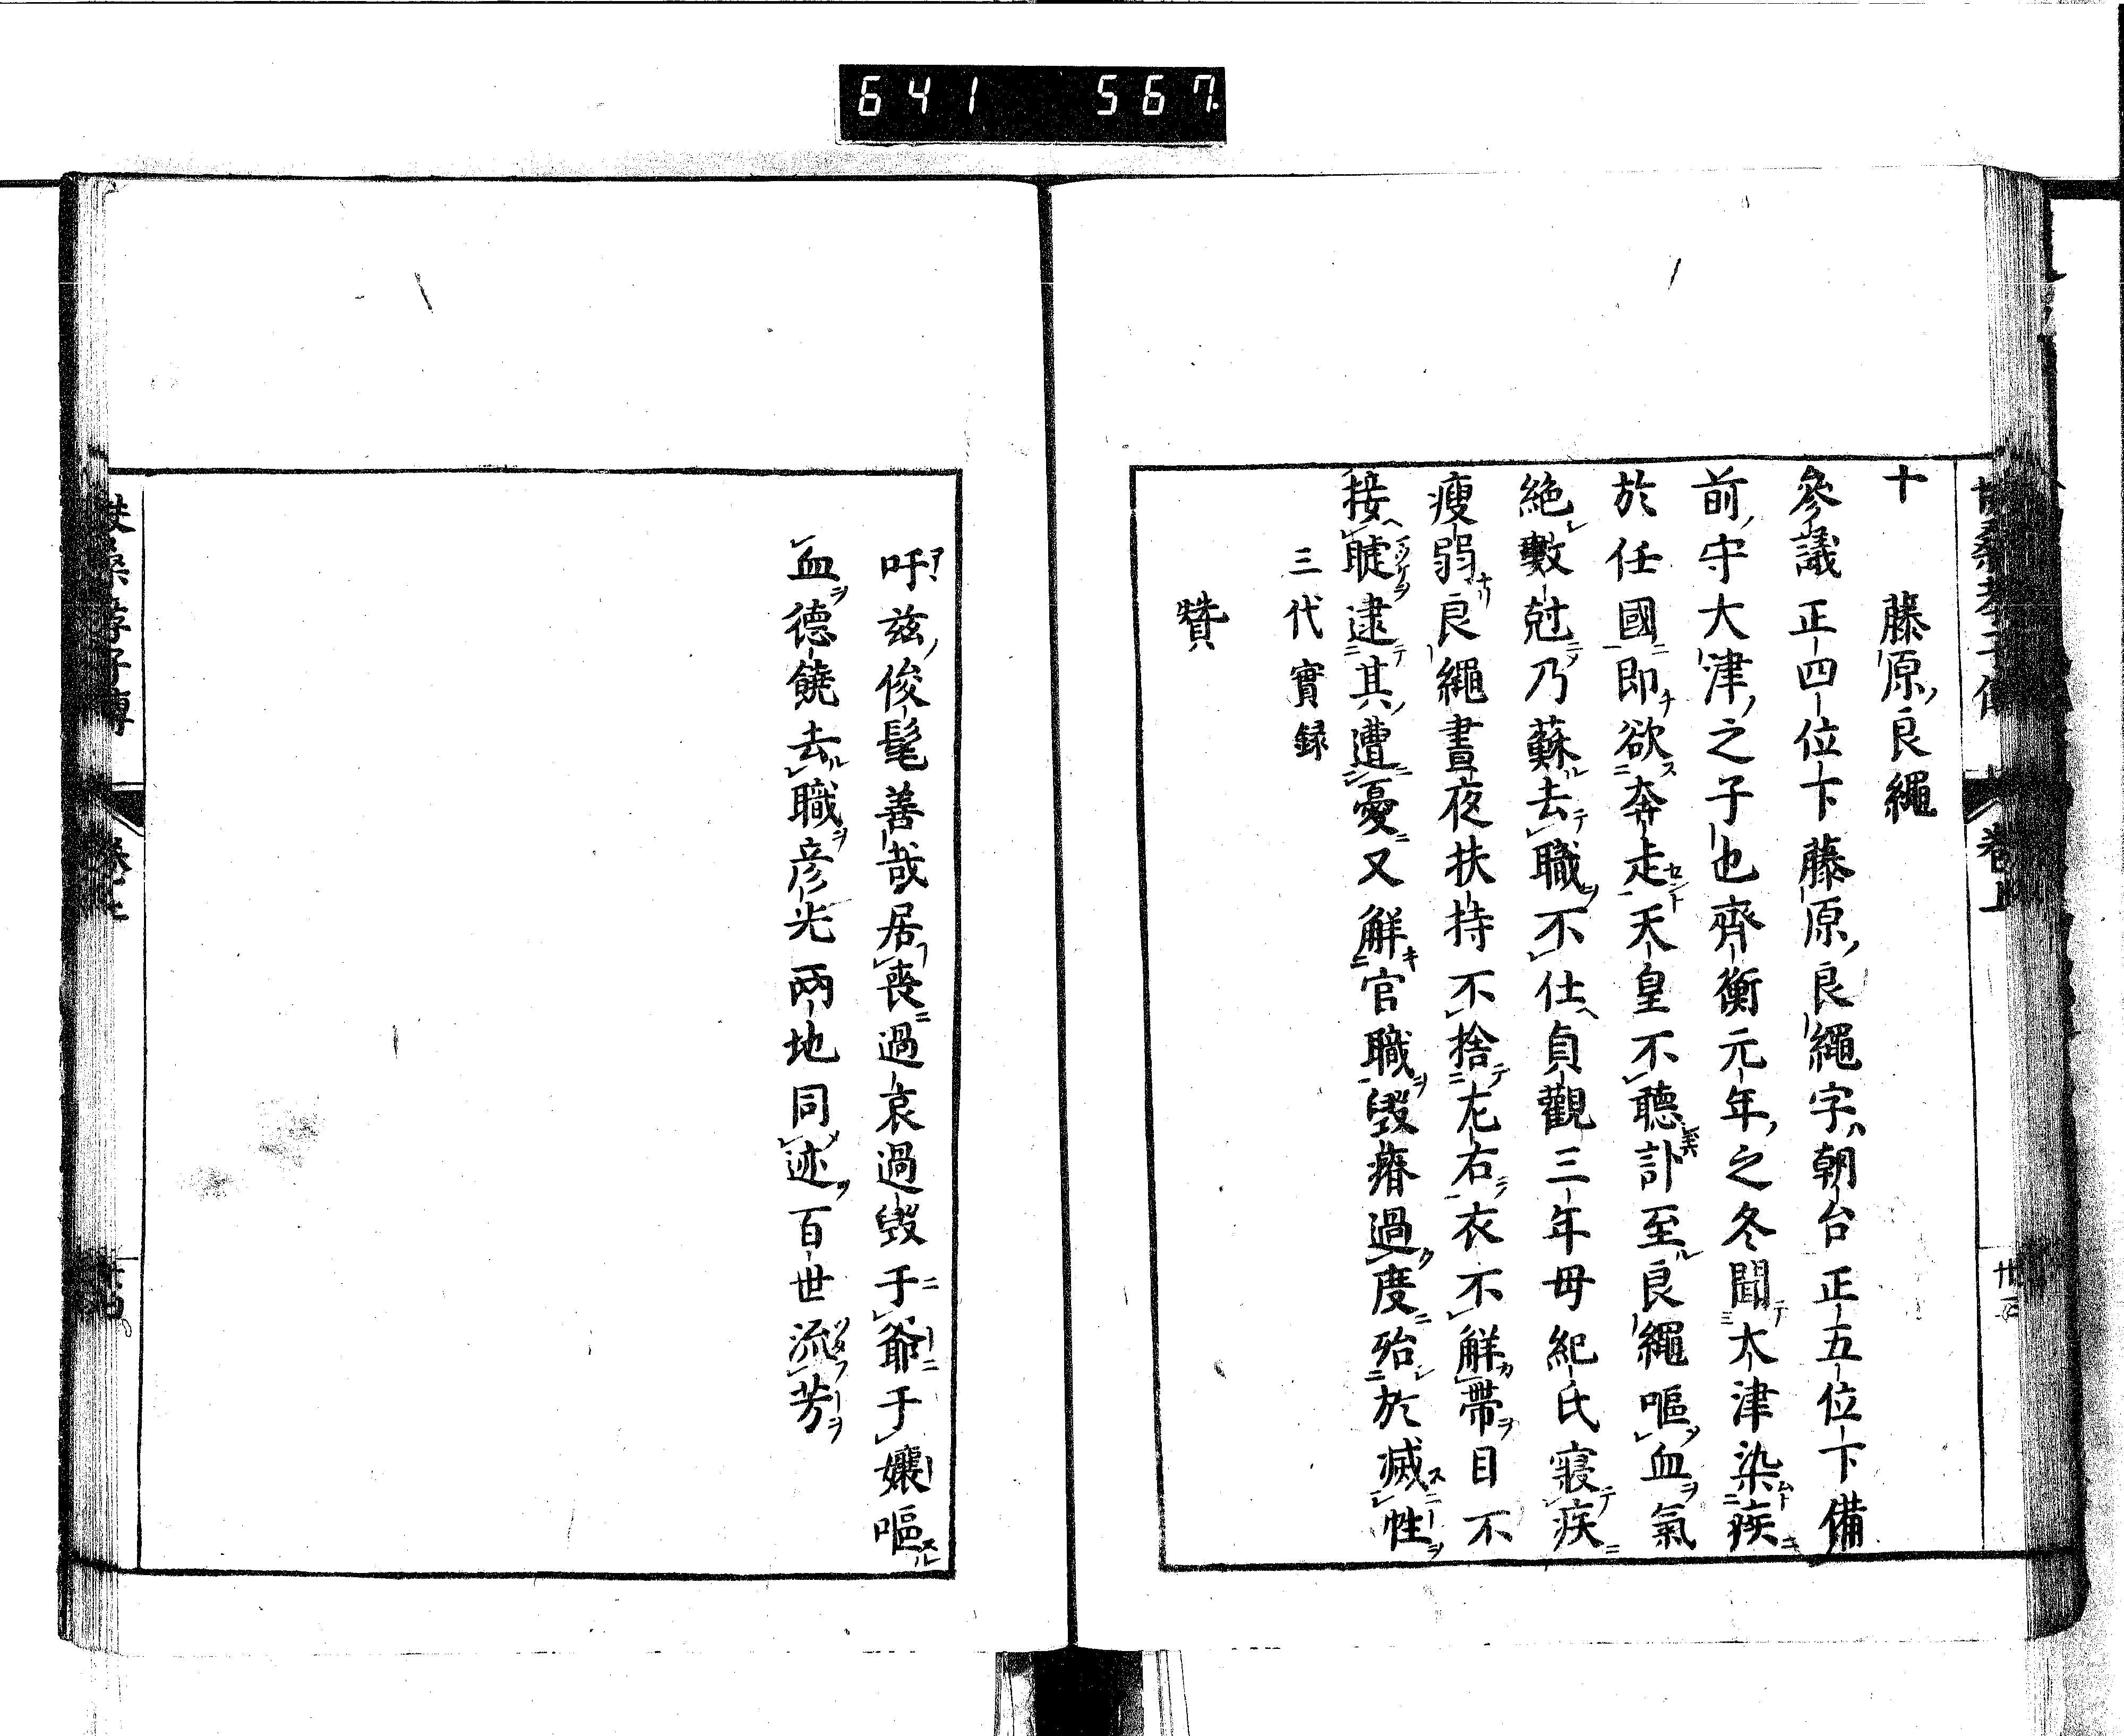 641 567.
十 藤原良繩
參議正四位下藤原良繩字朝台正五位下備
前守大津之子也齊衡元年之冬聞大津染疾
於任國即欲奔走天皇不聽訃至良繩嘔血氣
絶數尅乃蘇去職不仕貞觀三年母紀氏寢疾
瘦弱良繩晝夜扶持不捨左右衣不解帶目不
接睫逮其遭憂又解官職毀瘠過度殆於滅性
三代實録
贊
吁兹俊髦善哉居喪過哀過毀于爺于孃嘔
血德饒去職彦光兩地同迹百世流芳